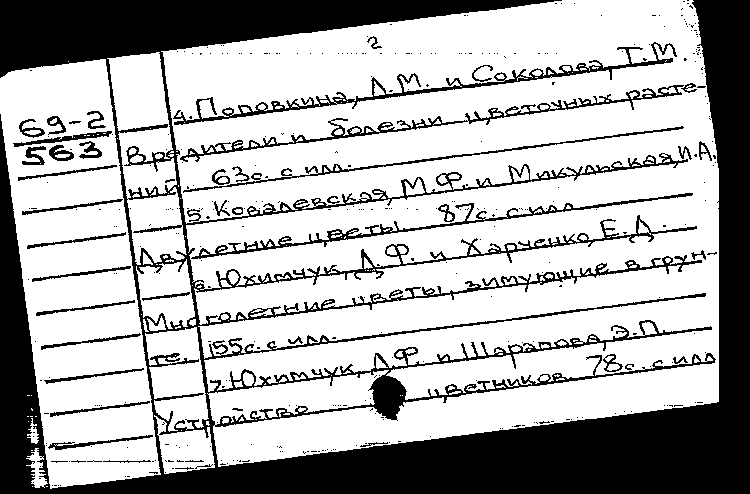 2
69-2
563
4. Поповкина, Л.М. и Соколова, Т.М.
Вредители и болезни цветочных расте-
ний. 63с. с илл.
5. Ковалевская, М.Ф. и Микульская, И.А.
Двулетние цветы. 87с. с илл
6. Юхимчук, Д.Ф. и Харченко, Е.Д.
Многолетние цветы, зимующие в грун-
те. 155с. с илл.
7. Юхимчук, Д.Ф. и Шарапова, Э.П.
Устройство цветников. 78с. с илл